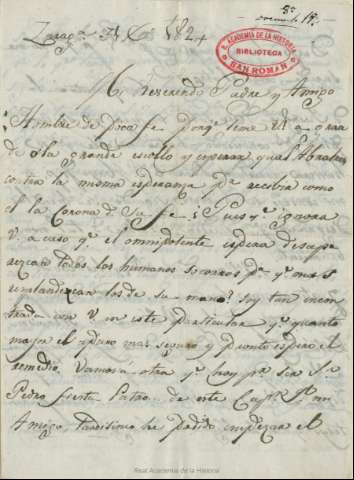 R. ACADEMIA DE LA HISTORIA
BIBLIOTECA
SAN ROMAN
Zarag.ª 1824
Mi Reverendo Padre y Amigo
Hombre de poca fe porq.e teme V. a
de la grande escollo y esperar qual Abrahan
contra la misma esperanza p.a recibir como
el la Corona de su fe? Pues q.e ignora
V. acaso q.e el omnipotente espera desapa
rezcan todos los humanos socorros p.a q.e mas
resplandezcan los de su mano? Soy tan incon
con V. en este particular q.e quanto
mayor el apuro mas seguro y pronto espero el
remedio. Vamos a otra q.e hoy p.r ser S.n
Pedro fiesta Patron de este Cap. mi
Amigo, tardisimo he podido empezar el
Real Academia de la Historia